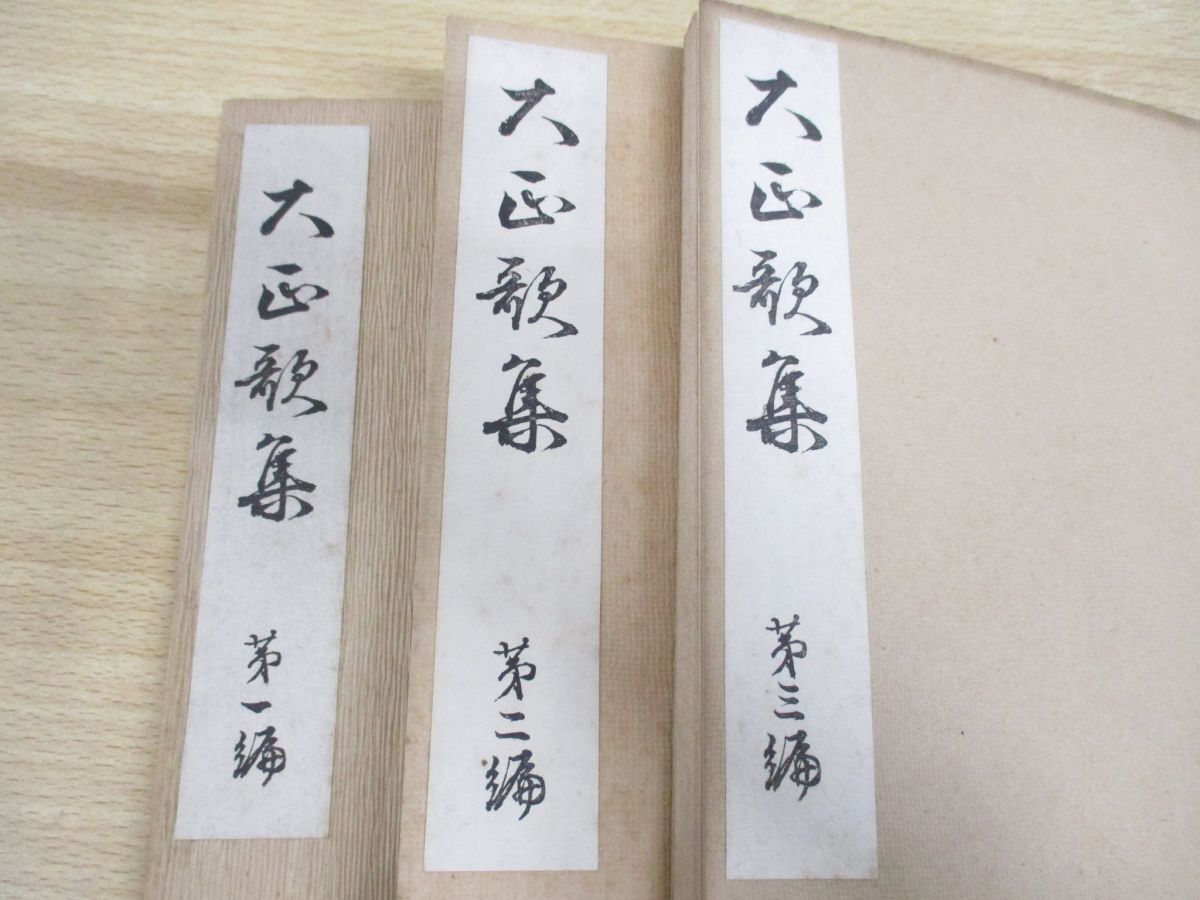 大正歌集 第一編
大正歌集 第二編
大正歌集 第三編